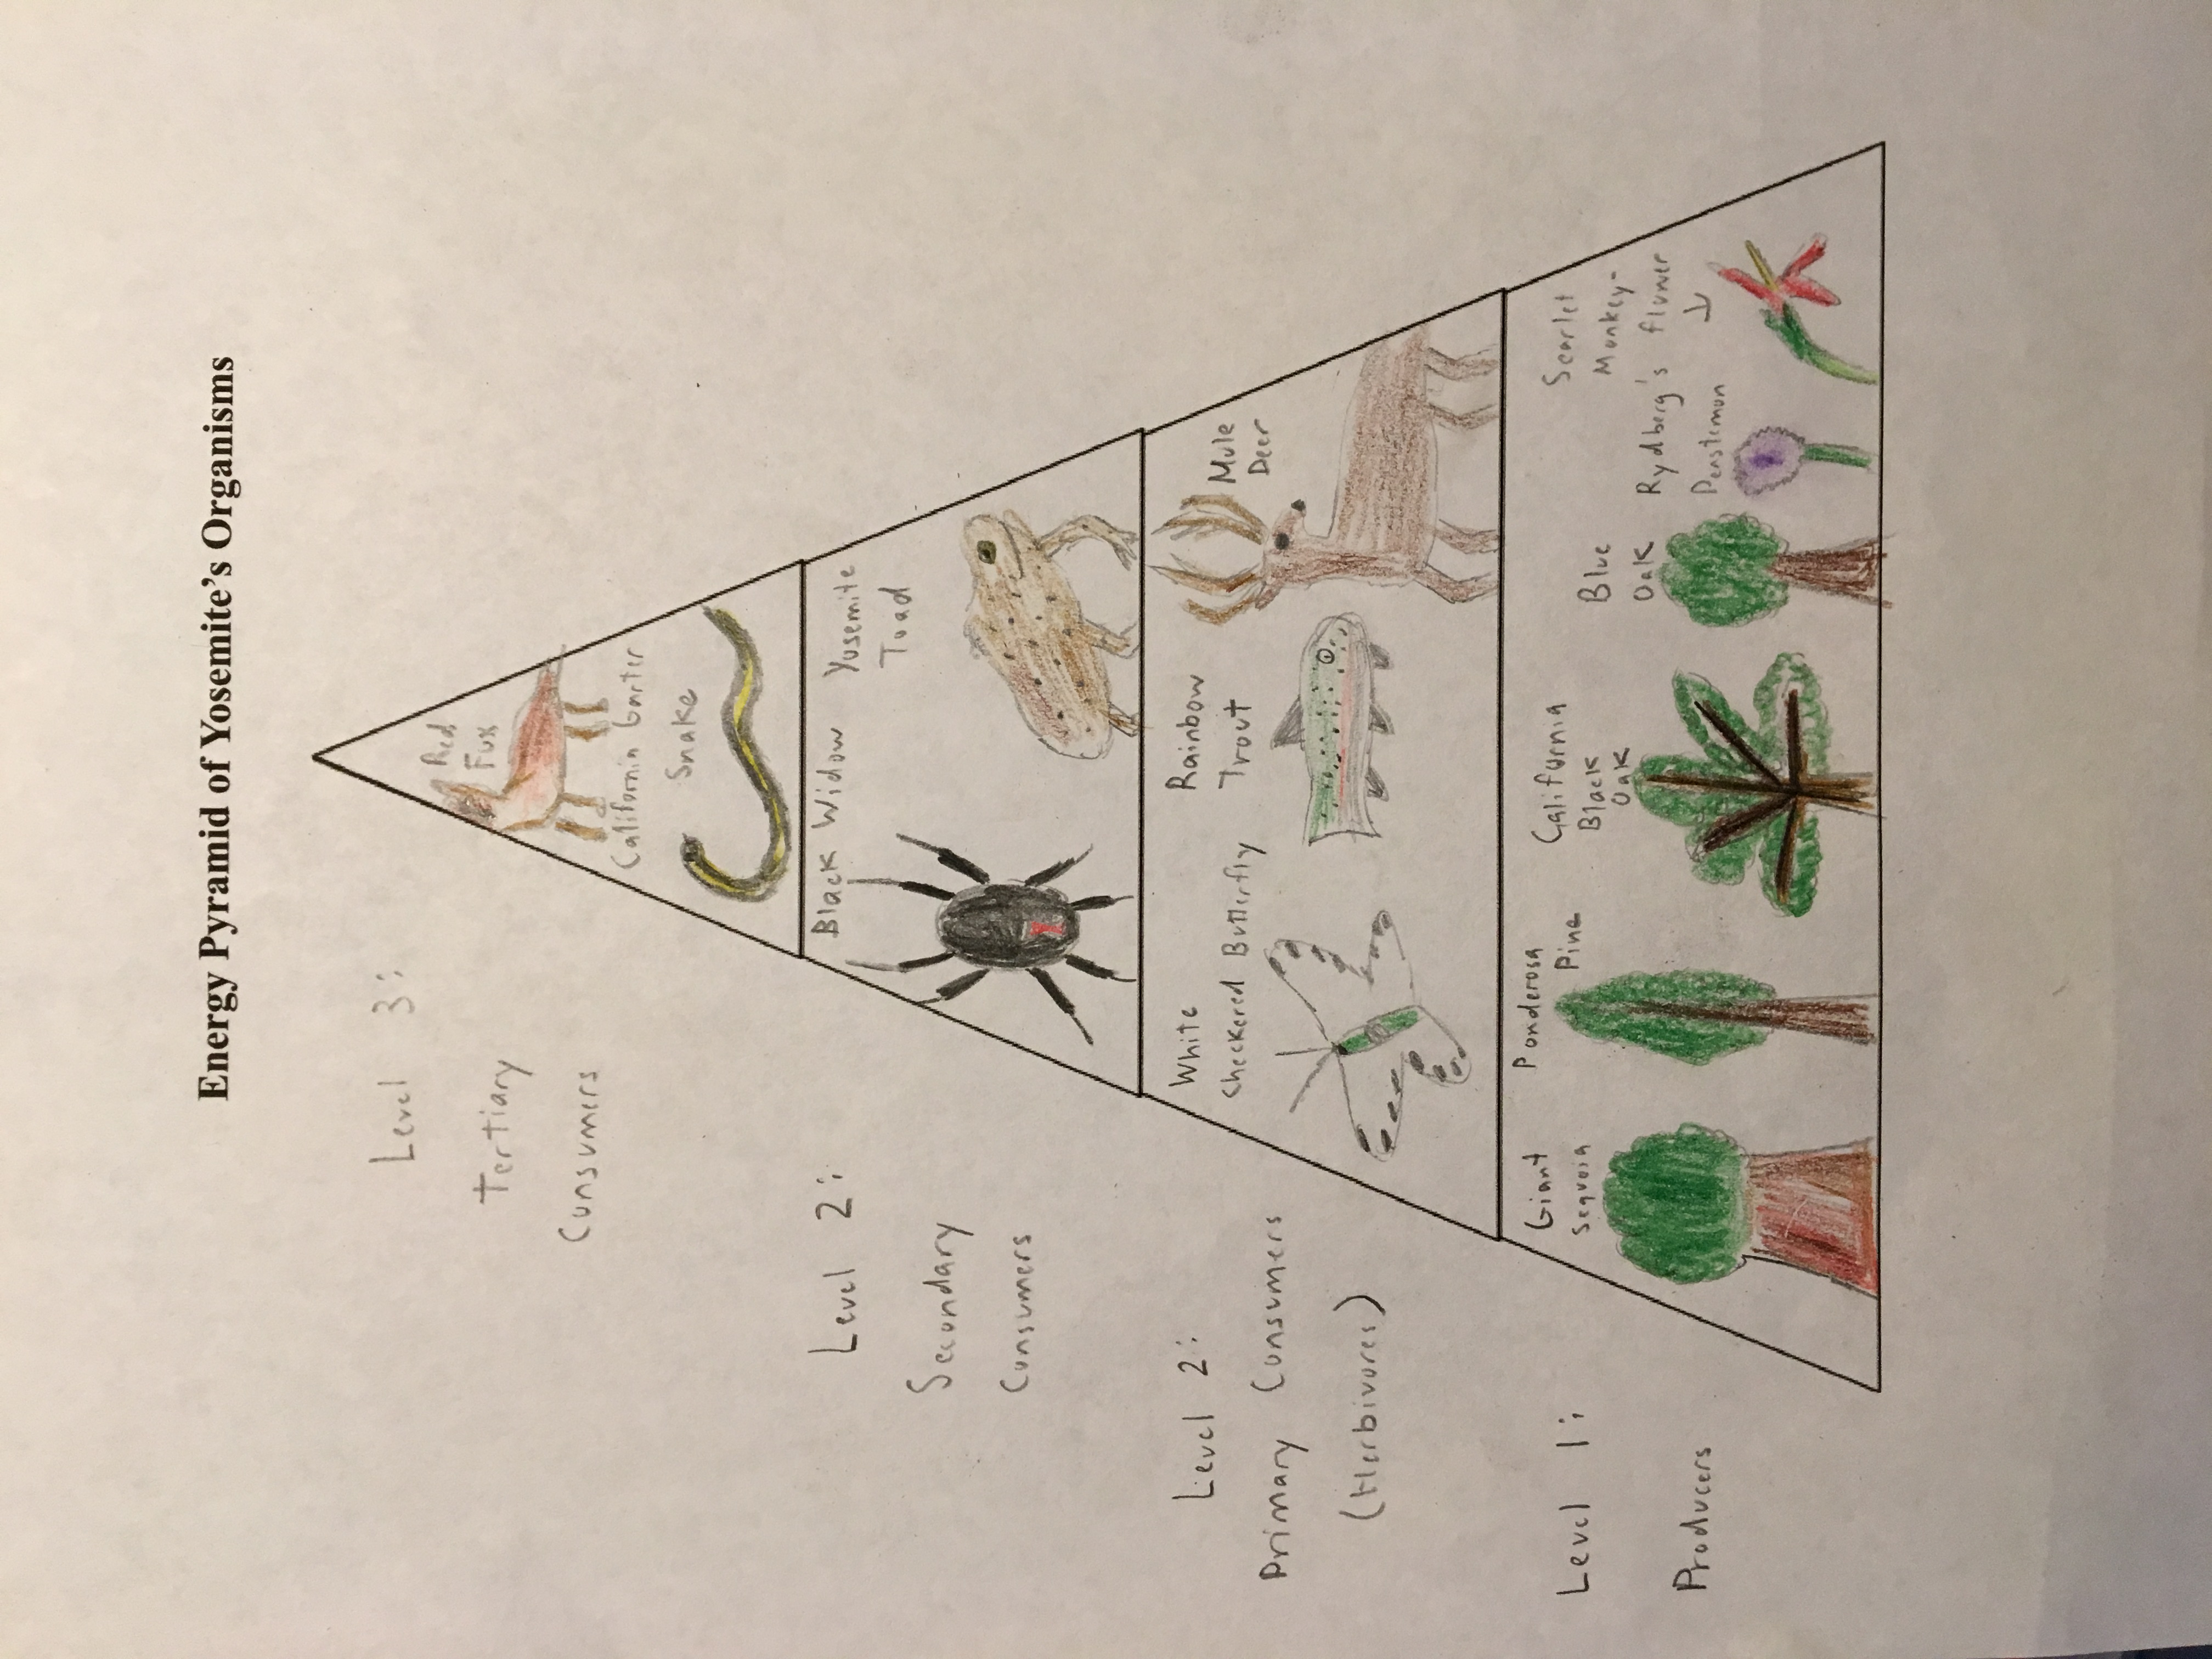 Energy Pyramid of Yosemite’s Organisms
Level 3:
Tertiary
Consumers
Red
Fox
California Garter
Snake
Level 2:
Secondary
Consumers
Black Widow
Yosemite
Toad
Level 2:
Primary Consumers
(Herbivores)
White
Checkered Butterfly
Rainbow
Trout
Mule
Deer
Level 1:
Producers
Giant
Sequoia
Ponderosa
Pine
California
Black
Oak
Blue
Oak
Rydberg's
Penstemon
Scarlet
Monkey-
flower